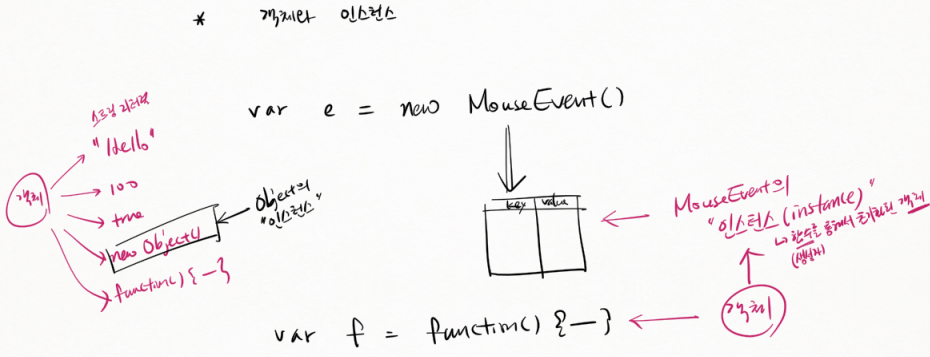 * 객체와 인스턴스
var e = new MouseEvent()
스트링 리터럴
"Hello"
객체
100
true
new Object()
Object의
"인스턴스"
function() {—}
key value
MouseEvent의
"인스턴스 (instance)"
↳ 함수를 통해서 초기화된 객체
(생성자)
객체
var f = function() {—}